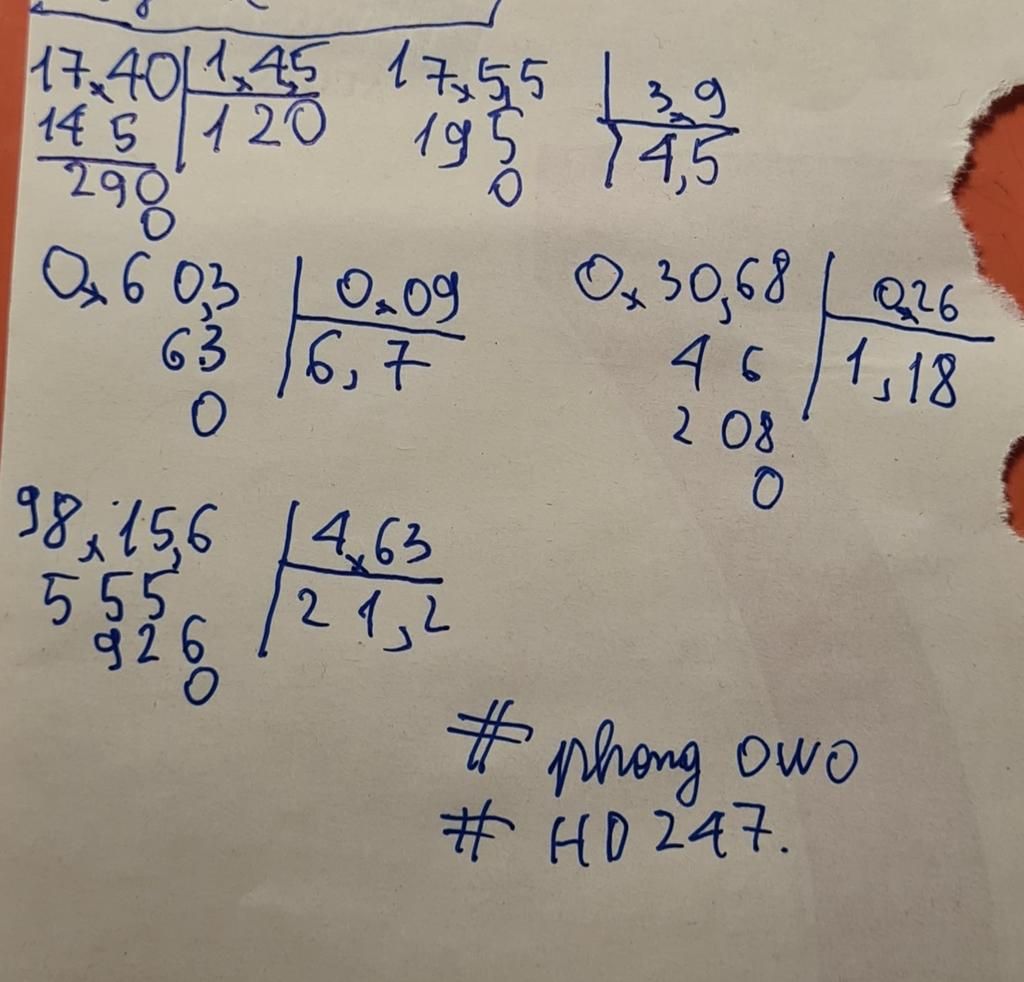 17,40 1,45 17,55 3,9
145 120 195 4,5
290 0
0
0,603 0,09 0,30,68 0,26
63 6,7 46 1,18
0 208
0
98,15,6 4,63
555 21,2
926
0
# phong owo
# HD 247.